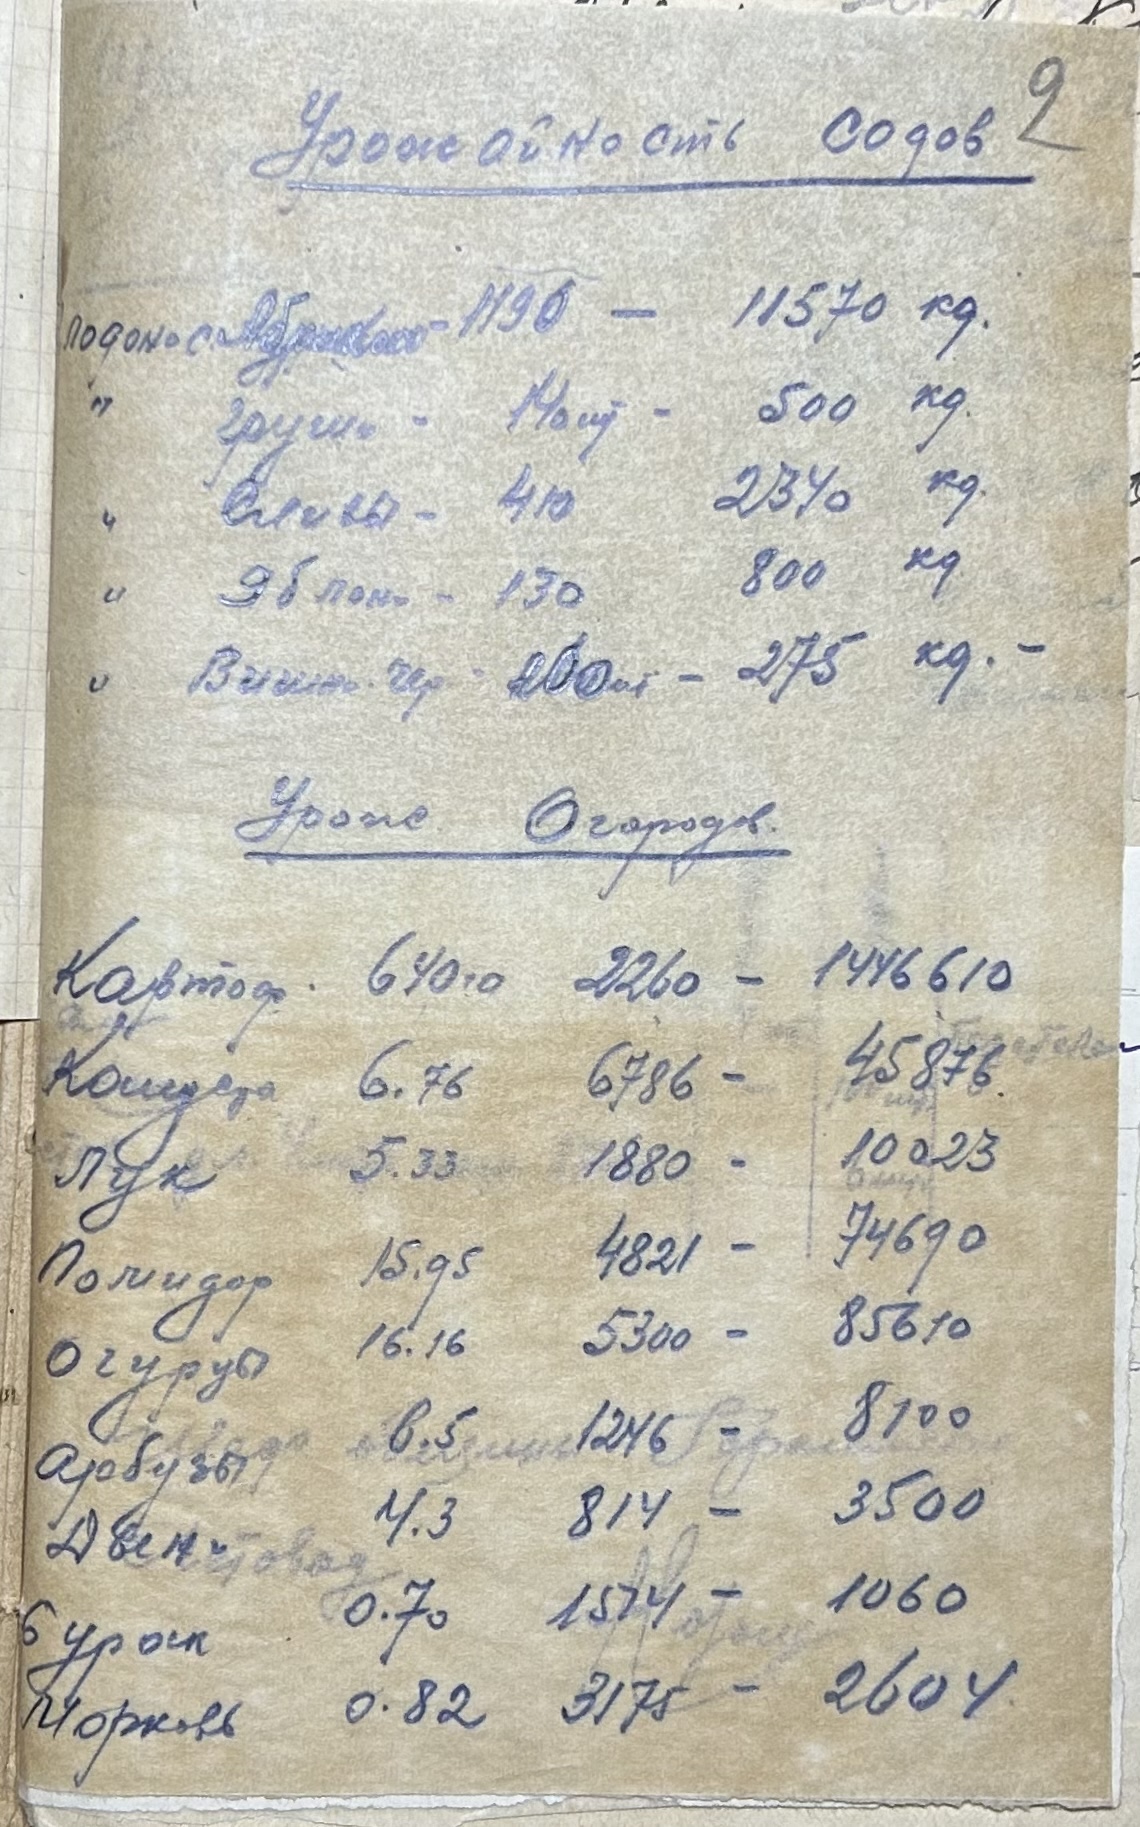 2
Урожайность содов
1196 — 11570 кд.
" Груши - 14 шт - 500 кд.
" Сливы - 410 2340 кд.
" Яблон. - 130 800 кд
" Вишн. чер - шт - 275 кд. -
Урож Огородов.
Картоф. 640.0 2260 - 1446610
Капуста 6.76 6786 - 45876
Лук 5.33 1880 - 10023
Помидор 15.95 4821 - 74690
Огурцы 16.16 5300 - 85610
Арбузы 6.5 1246 - 8100
Дыни 4.3 814 - 3500
Бурак 0.70 1514 - 1060
Морковь 0.82 3175 - 2604